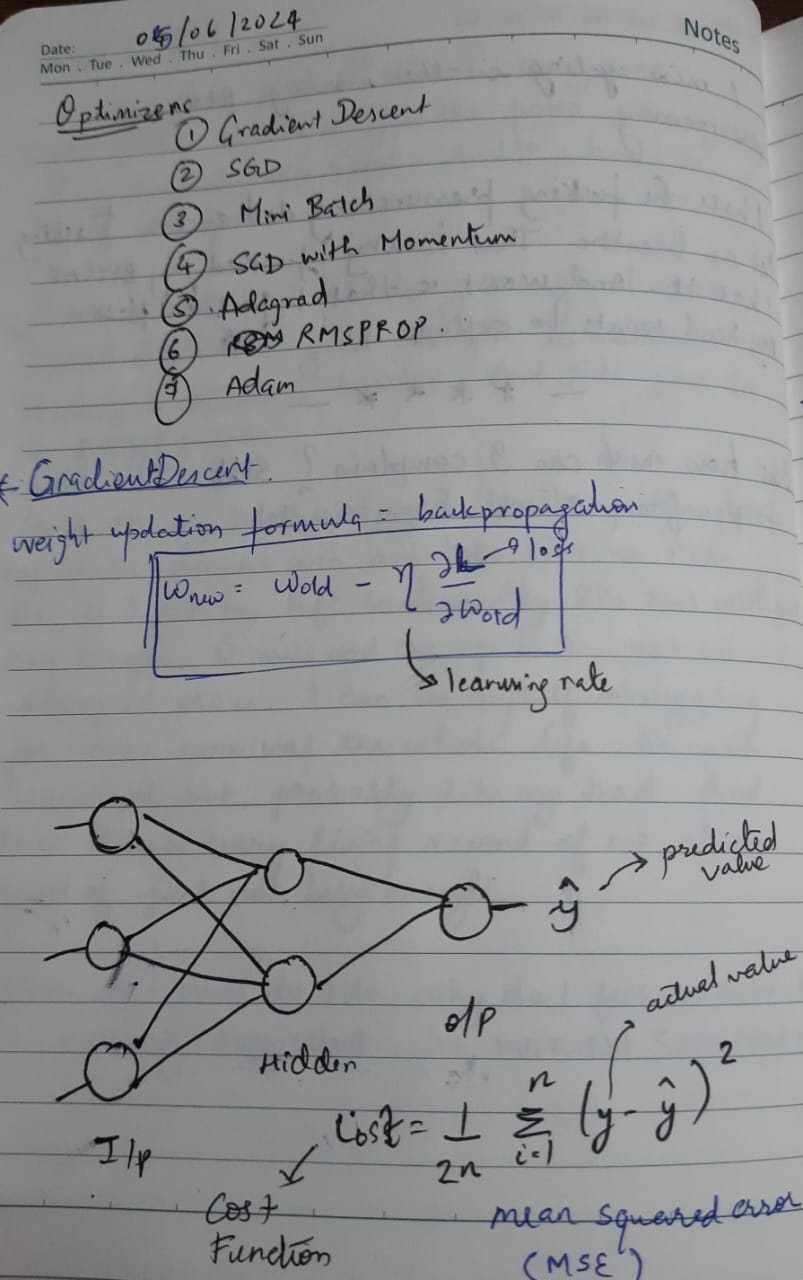 Notes
Date: 05/06/2024
Mon . Tue . Wed . Thu . Fri . Sat . Sun
Optimizers
① Gradient Descent
② SGD
③ Mini Batch
④ SGD with Momentum
⑤ Adagrad
⑥ RMSPROP.
⑦ Adam
Gradient Descent.
weight updation formula = backpropagation
Wnew = Wold - η ∂L/∂Wold → loss
learning rate
ŷ → predicted value
actual value
O/P
Hidden
Cost = 1/2n Σ i=1 n (y - ŷ)²
I/p
Cost Function
mean squared error
(MSE)